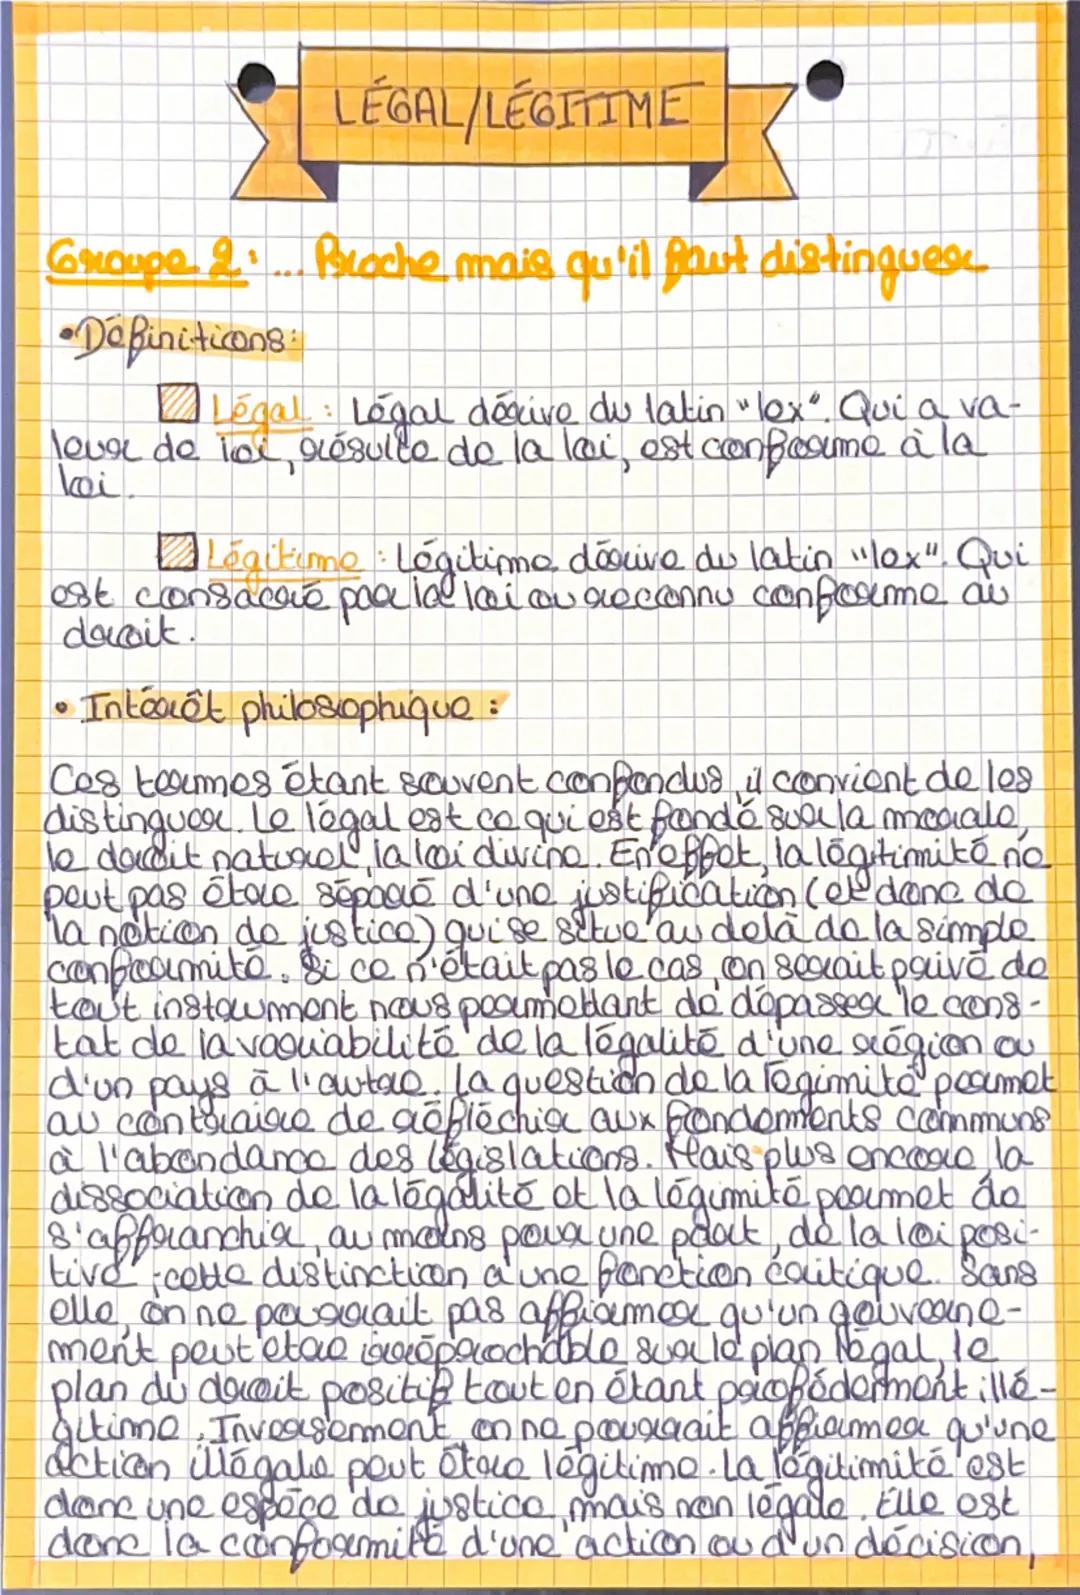 LÉGAL/LÉGITIME
Groupe 2 : ... Proche mais qu'il faut distinguer
• Définitions :
Légal : Légal dérive du latin "lex". Qui a va-
leur de loi, résulte de la loi, est conforme à la
loi.
Légitime : Légitime dérive du latin "lex". Qui
est consacré par la loi ou reconnu conforme au
droit.
• Intérêt philosophique :
Ces termes étant souvent confondus, il convient de les
distinguer. Le légal est ce qui est fondé sur la morale,
le droit naturel, la loi divine. En effet, la légitimité ne
peut pas être séparé d'une justification (et donc de
la notion de justice) qui se situe au delà de la simple
conformité. Si ce n'était pas le cas, on serait privé de
tout instrument nous permettant de dépasser le cons-
tat de la variabilité de la légalité d'une région ou
d'un pays à l'autre. La question de la légimité permet
au contraire de réfléchir aux fondements communs
à l'abondance des législations. Mais plus encore, la
dissociation de la légalité et la légimité permet de
s'affranchir, au moins pour une part, de la loi posi-
tive ; cette distinction a une fonction critique. Sans
elle, on ne pourrait pas affirmer qu'un gouverne-
ment peut etre irréprochable sur le plan légal, le
plan du droit positif tout en étant profédemment illé-
gitime. Inversement on ne pourrait affirmer qu'une
action illégale peut être légitime. La légitimité est
donc une espèce de justice, mais non légale. Elle est
donc la conformité d'une action ou d'un décision,